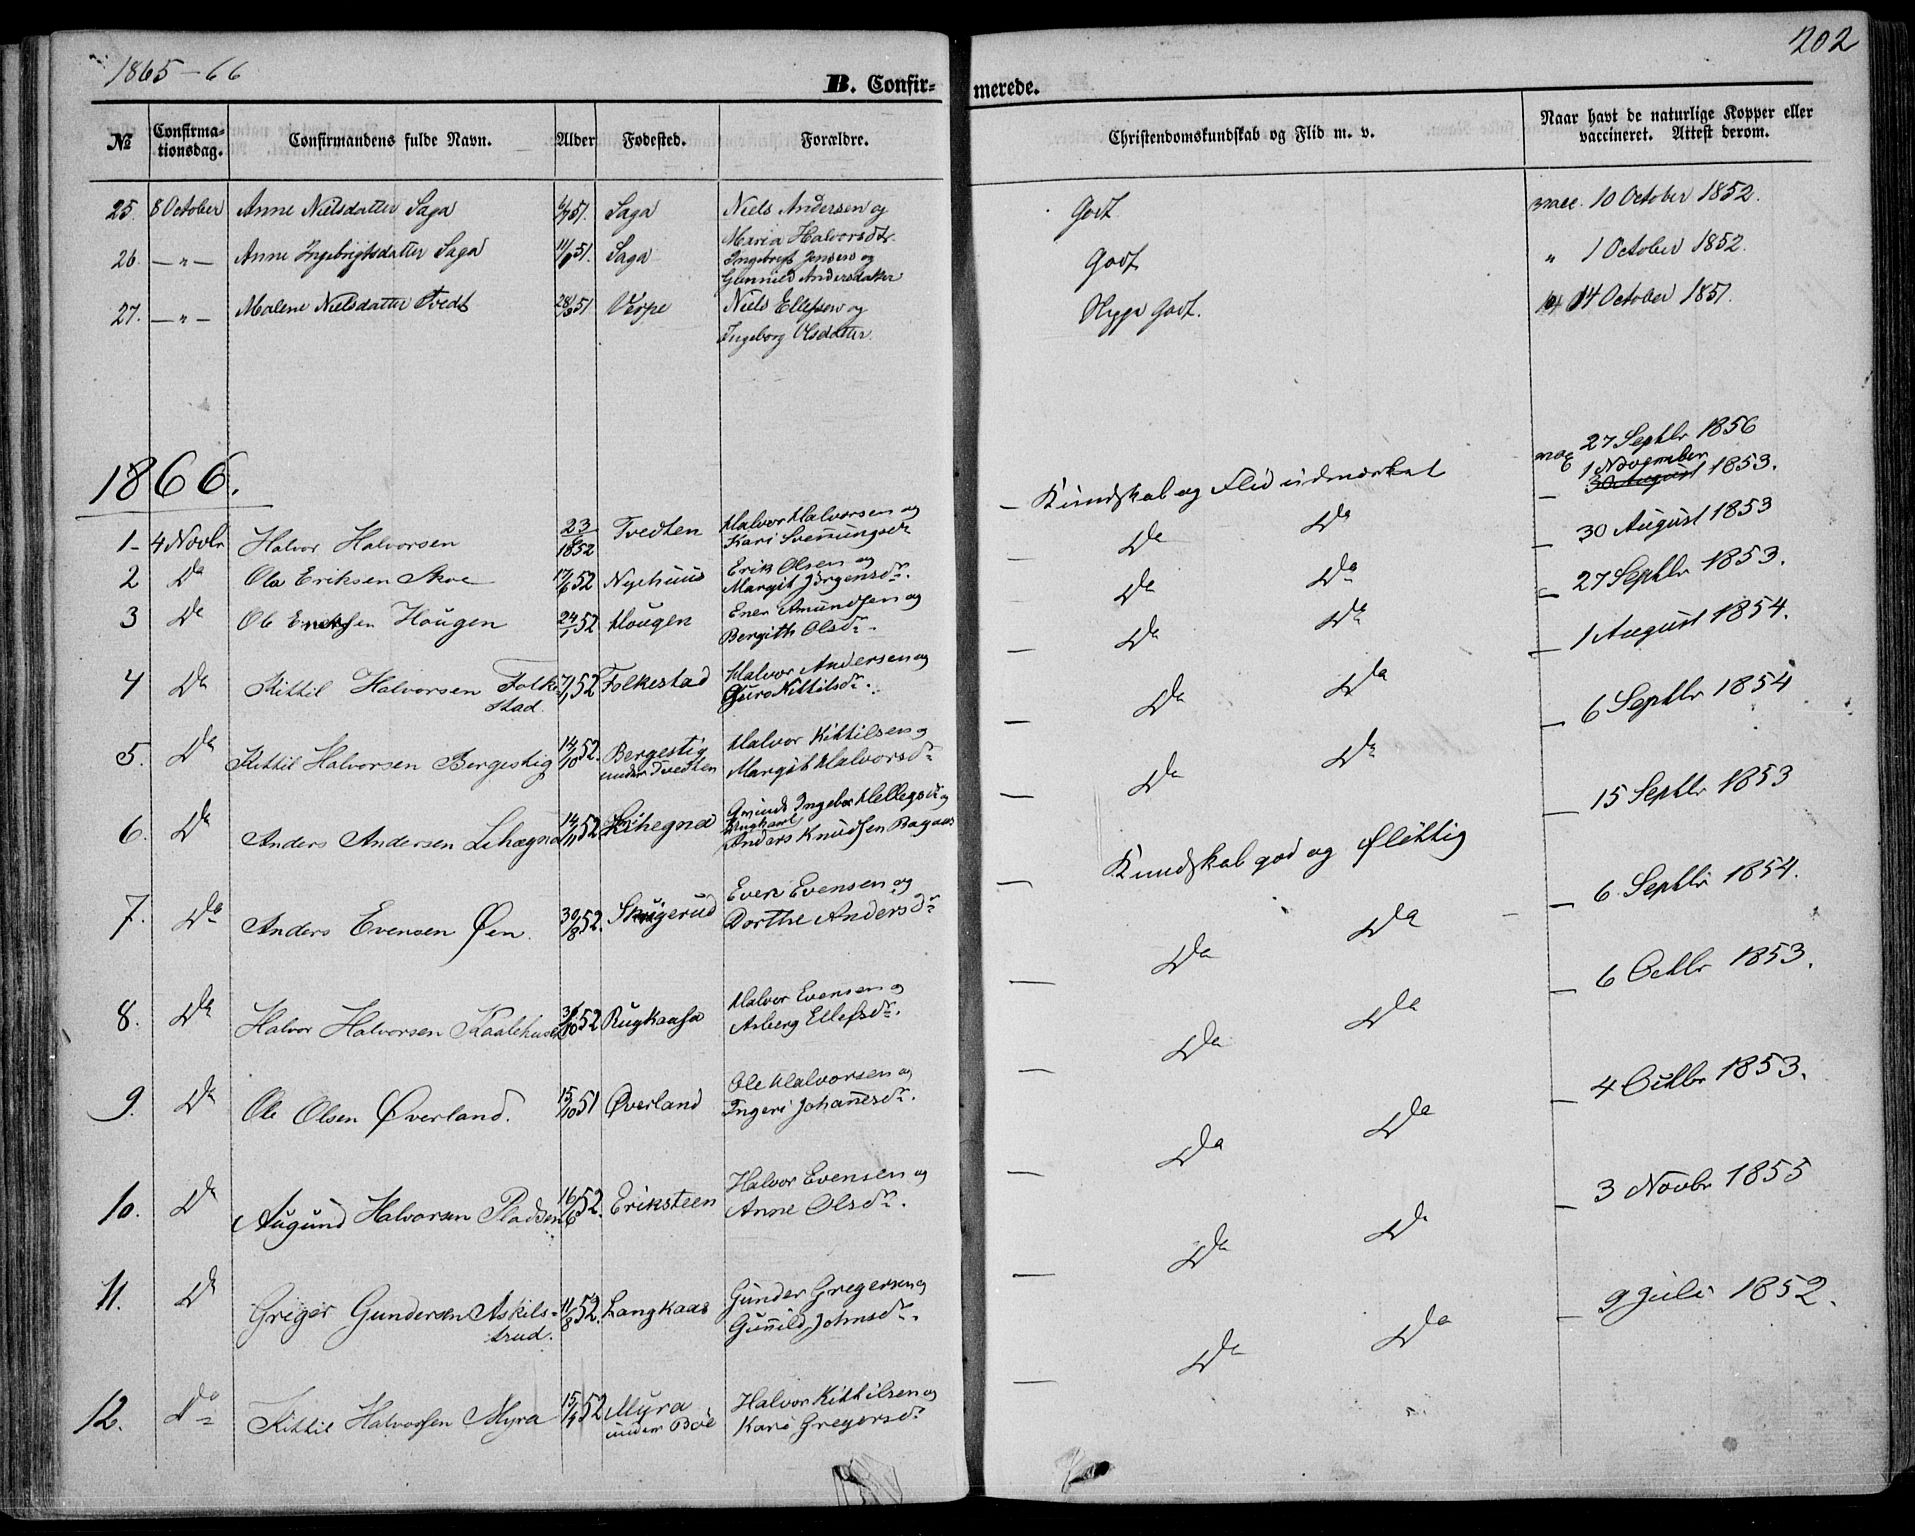 1865-66
202
B. Confir-
merede.
№
Confirma-
tionsdag.
Confirmandens fulde Navn.
Alder
Fødested.
Forældre.
Christendomskundskab og Flid m. v.
Naar havt de naturlige Kopper eller
vaccineret. Attest derom.
25. 8 October Anne Nielsdatter Saga 6/7 51. Saga Niels Andersen og Godt 10 October 1852.
Maria Halvorsdtr.
26. -"- Anne Ingebrigtsdatter Saga 11/9 51. Saga Ingebrigt Jensen og Godt " 1 October 1852.
Gunnild Andersdatter
27. -"- Malene Nielsdatter Tvedt 28/8 51 Verpe Niels Ellefsen og Godt. 14 October 1851.
Ingeborg Olsdatter.
1866.
27 Septbr 1856
1 November
30 August 1853.
1- 4 Novbr Halvor Halvorsen 23/ 1852 Tvedten Halvor Halvorsen og - Kundskab og Flid udmærket
Kari Svenungsdr
2 Do Ola Eriksen Skoe 17/6 52 Nyehuus Erik Olsen og Do Do - 30 August 1853
Margit Jørgensdr.
3 Do Ole Hougen 24/1 52 Hougen Ener Amundsen og Do Do - 27 Septbr 1853.
Bergith Olsdr.
4 Do Kittil Halvorsen Folke- 7/1 52 Folkestad Halvor Andersen og - Do Do - 1 August 1854.
stad. Guro Kittilsdr.
5. Do Kittil Halvorsen Bergestig 14/10 52. Bergestig Halvor Kittilsen og - Do Do - 6 Septbr 1854
under Tvedten Margit Halvorsdr
6. Do Anders Andersen Lihægna 14/11 52 Lihegna Ingebor Hellegsdr og - Do Do - 15 Septbr 1853
Ungkarl
Anders Knudsen
7. Do Anders Evensen Øen. 30/8 52. Skugerud Even Evensen og - Kundskab god og flittig - 6 Septbr 1854.
Dorthe Andersdr
8. Do Halvor Halvorsen Kaalehuset 3/10 52 Rugkaasa Halvor Evensen og - Do Do - 6 Octbr 1853.
Asberg Ellefsdr.
9. Do Ole Olsen Øverland. 15/10 51 Øverland Ole Halvorsen og - Do Do - 4 Octbr 1853.
Ingeri Johannesdr.
10. Do Augund Halvorsen Pladsen 16/6 52. Eriksteen Halvor Evensen og - Do Do - 3 Novbr 1855
Anne Olsdr.
11. Do Griger Gundersen Askils- 11/8 52. Langkaas Gunder Gregersen og - Do Do - 9 Juli 1852.
trud. Gunild Johnsdr.
12. Do Kittil Halvorsen Myra 15/9 52 Myra Halvor Kittilsen og - Do Do
under Bøe Kari Gregersdr